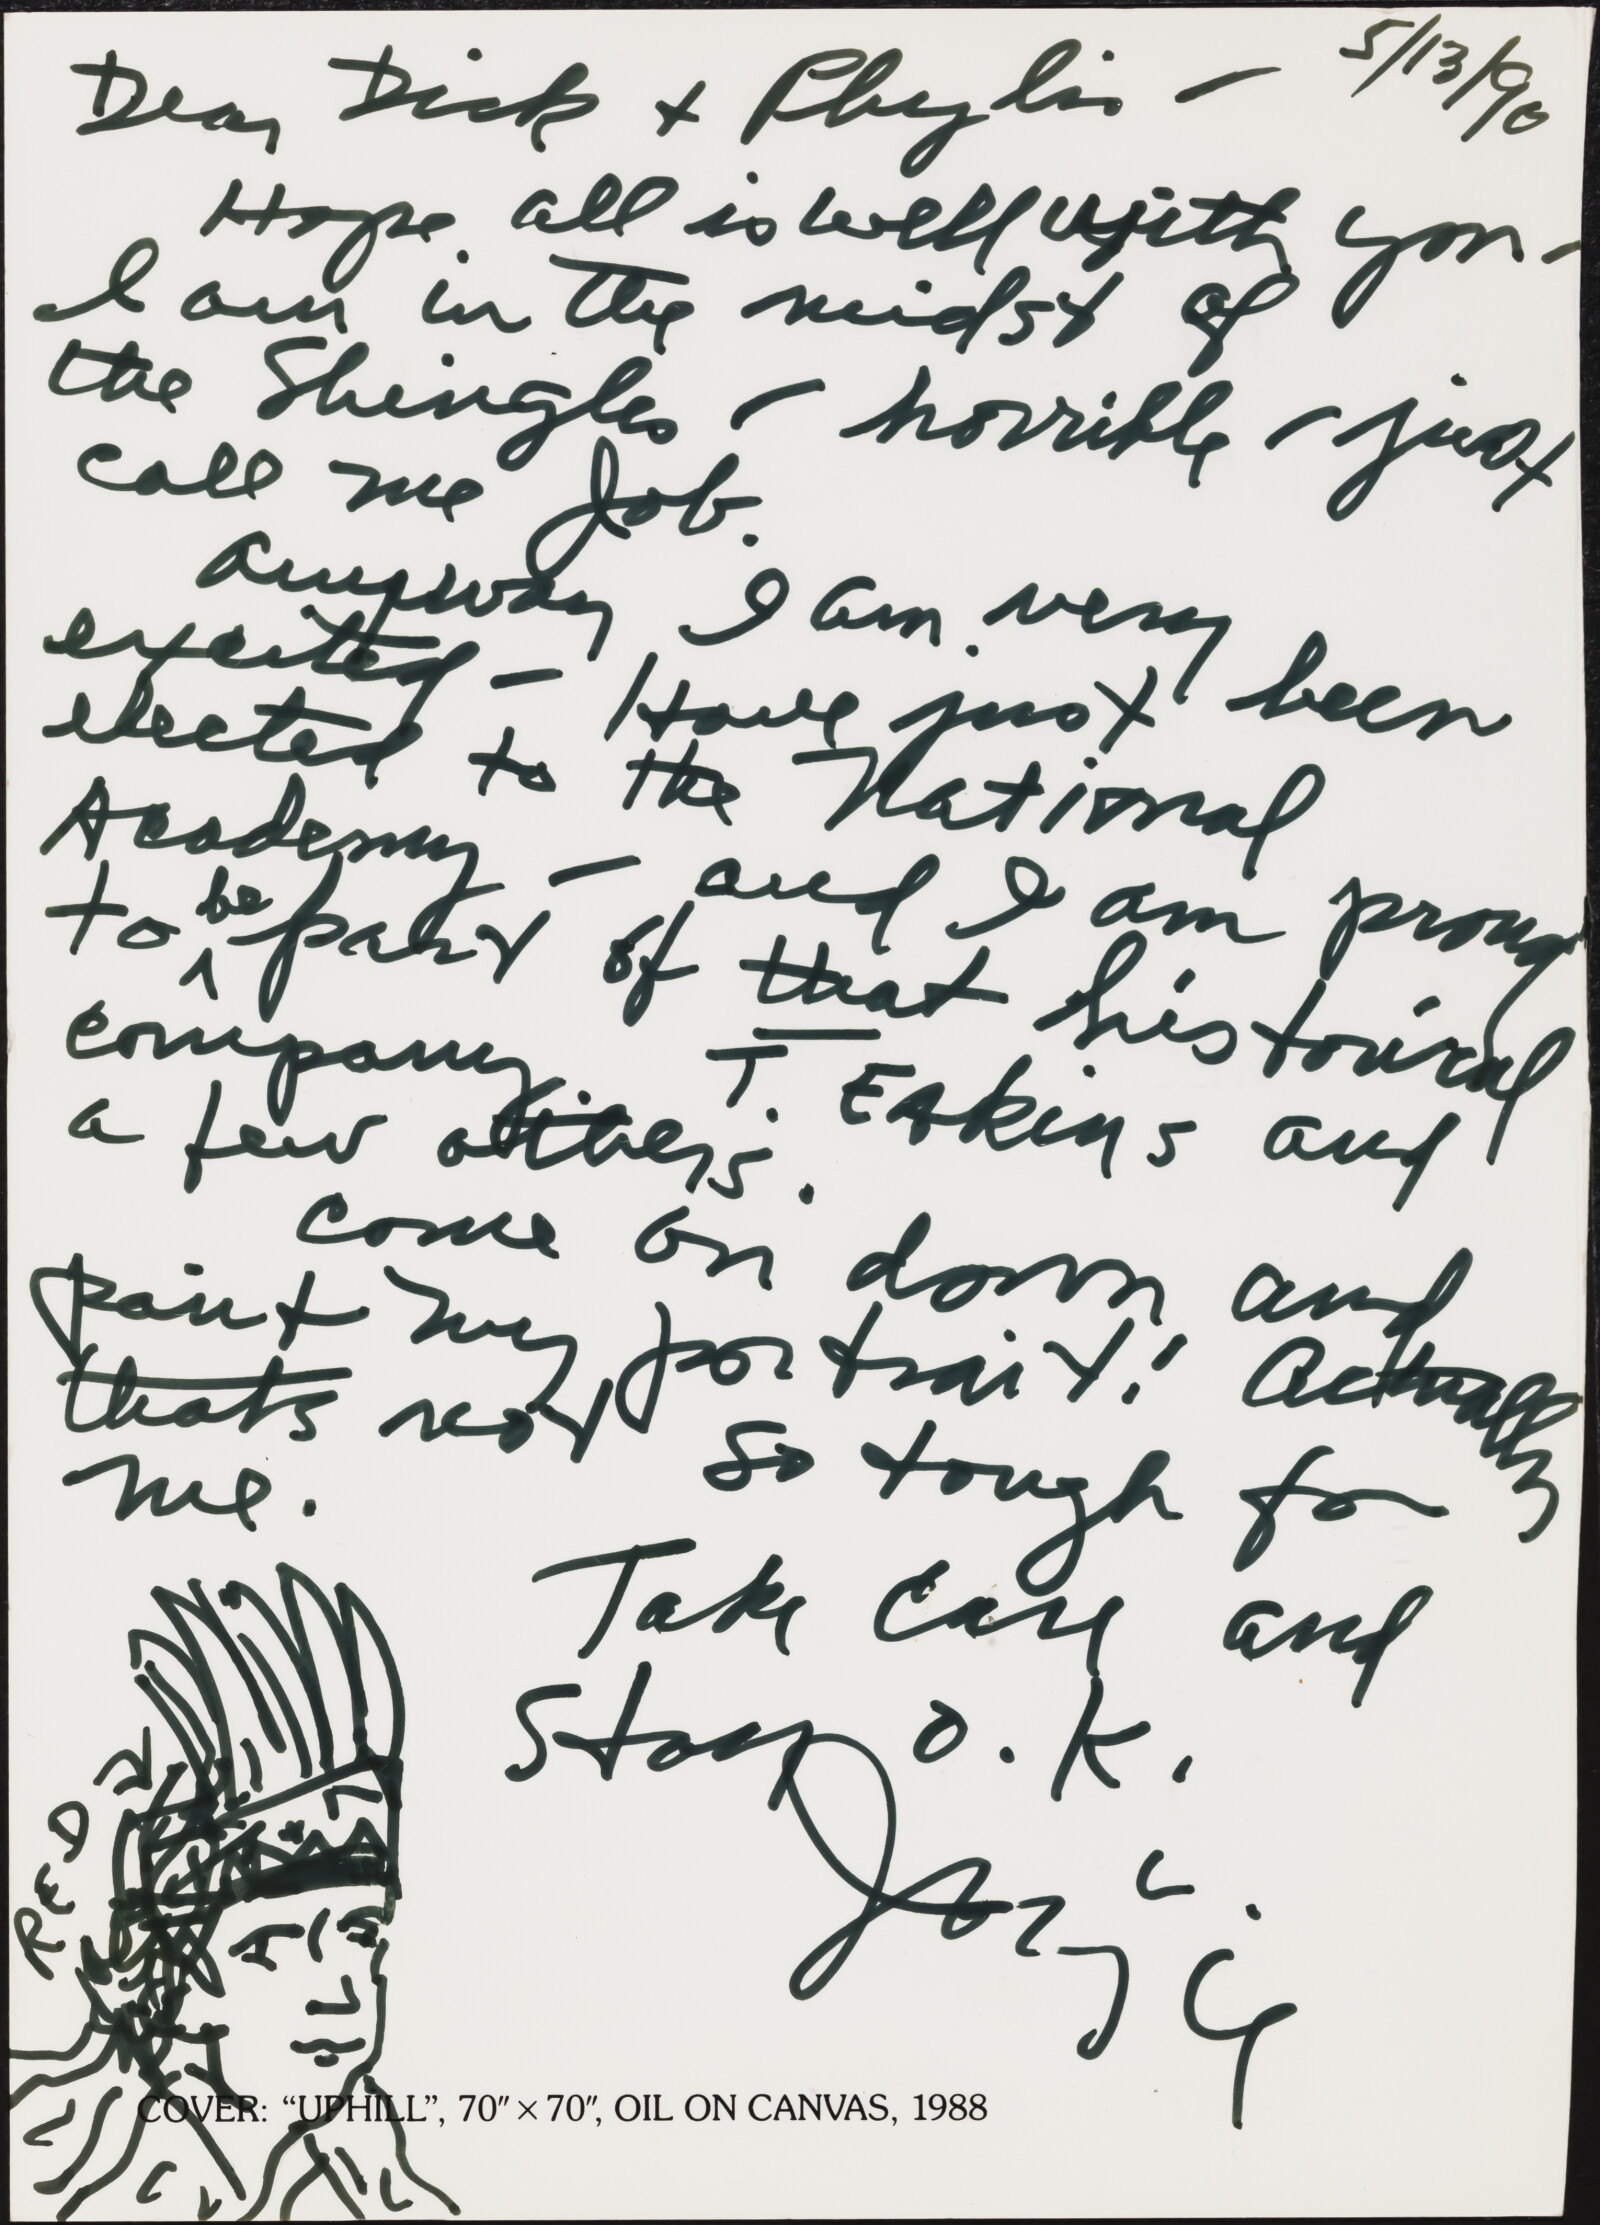 5/13/90
Dear Dick + Phylis —
Hope all is well with you -
I am in the midst of
the Shingles - horrible - just
call me Job.
Anyway I am very
excited - Have just been
elected to the National
Academy — and I am proud
to be part of that historical
company. T. Eakins and
a few others.
Come on down and
paint my portrait! Actually
thats not so tough for
me.
Take Care and
Stay O.K.
RED
COVER: “UPHILL”, 70″ × 70″, OIL ON CANVAS, 1988